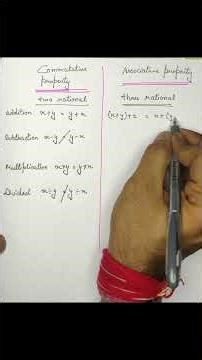 Commutative property
Associative property
two rational
three rational
addition x+y = y+x
(x+y)+z = x+(y
Subtraction x-y ≠ y-x
Multiplication x×y = y×x
Divided x÷y ≠ y÷x